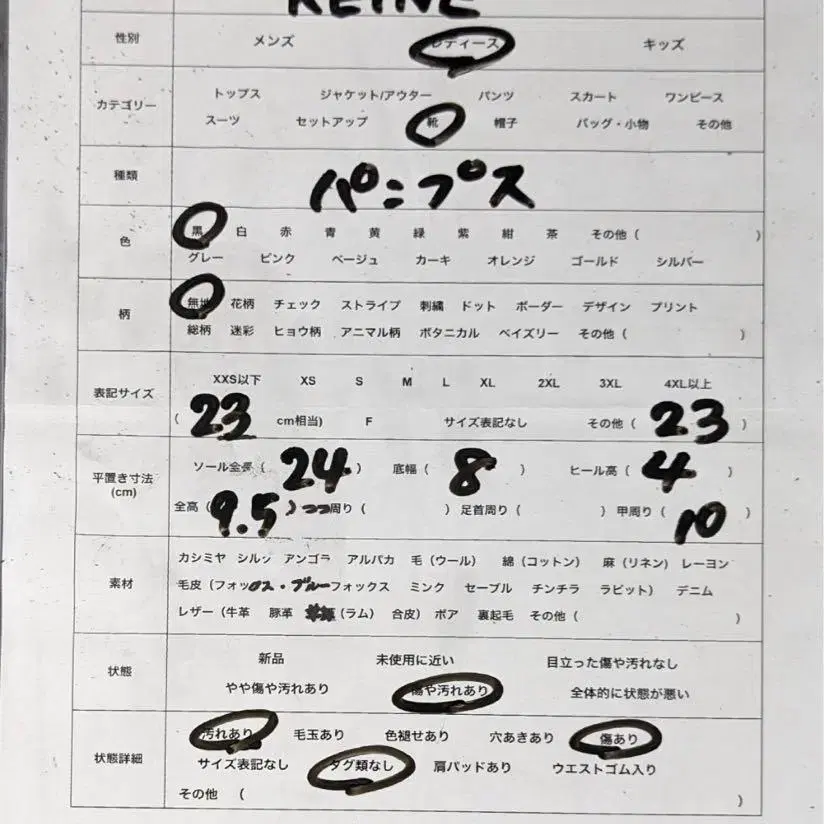 REINE
性別 メンズ レディース キッズ
カテゴリー トップス ジャケット/アウター パンツ スカート ワンピース
スーツ セットアップ 靴 帽子 バッグ・小物 その他
種類 パンプス
色 黒 白 赤 青 黄 緑 紫 紺 茶 その他 ( )
グレー ピンク ベージュ カーキ オレンジ ゴールド シルバー
柄 無地 花柄 チェック ストライプ 刺繍 ドット ボーダー デザイン プリント
総柄 迷彩 ヒョウ柄 アニマル柄 ボタニカル ペイズリー その他 ( )
表記サイズ XXS以下 XS S M L XL 2XL 3XL 4XL以上
( 23 cm相当) F サイズ表記なし その他 ( 23 )
平置き寸法 (cm) ソール全長 ( 24 ) 底幅 ( 8 ) ヒール高 ( 4 )
全高 ( 9.5 ) つつ周り ( ) 足首周り ( ) 甲周り ( 10 )
素材 カシミヤ シルク アンゴラ アルパカ 毛 (ウール) 綿 (コットン) 麻 (リネン) レーヨン
毛皮 (フォックス・ブルーフォックス ミンク セーブル チンチラ ラビット) デニム
レザー (牛革 豚革 (ラム) 合皮) ボア 裏起毛 その他 ( )
状態 新品 未使用に近い 目立った傷や汚れなし
やや傷や汚れあり 傷や汚れあり 全体的に状態が悪い
状態詳細 汚れあり 毛玉あり 色褪せあり 穴あきあり 傷あり
サイズ表記なし タグ類なし 肩パッドあり ウエストゴム入り
その他 ( )